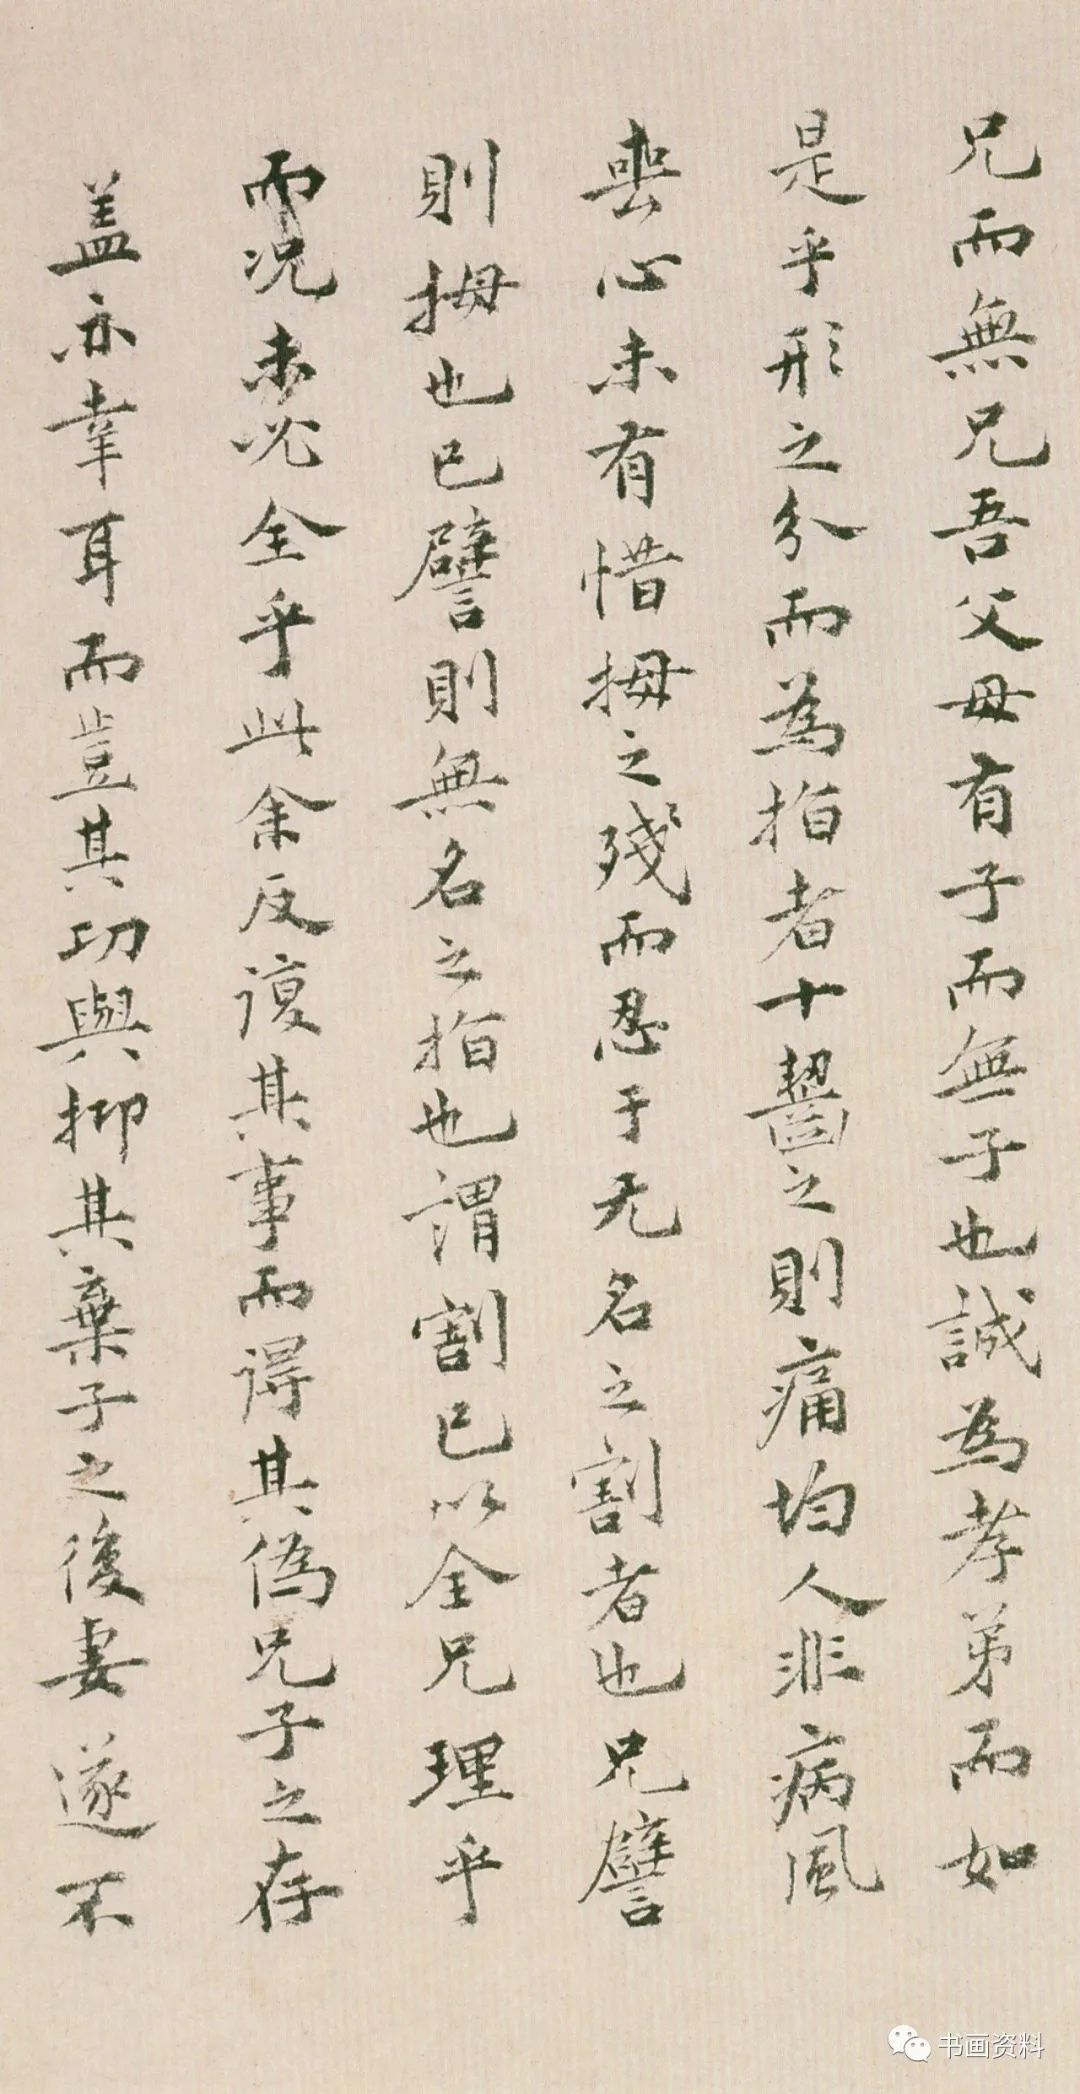 兄而無兄吾父母有子而無子也誠為孝弟而如
是乎形之分而為指者十齧之則痛均人非病風
喪心未有惜拇之殘而忍于无名之割者也兄譬
則拇也已譬則無名之指也謂割已以全兄理乎
而況未必全乎此余反復其事而得其偽兄子之存
蓋亦幸耳而豈其功與抑其棄子之後妻遂不
书画资料